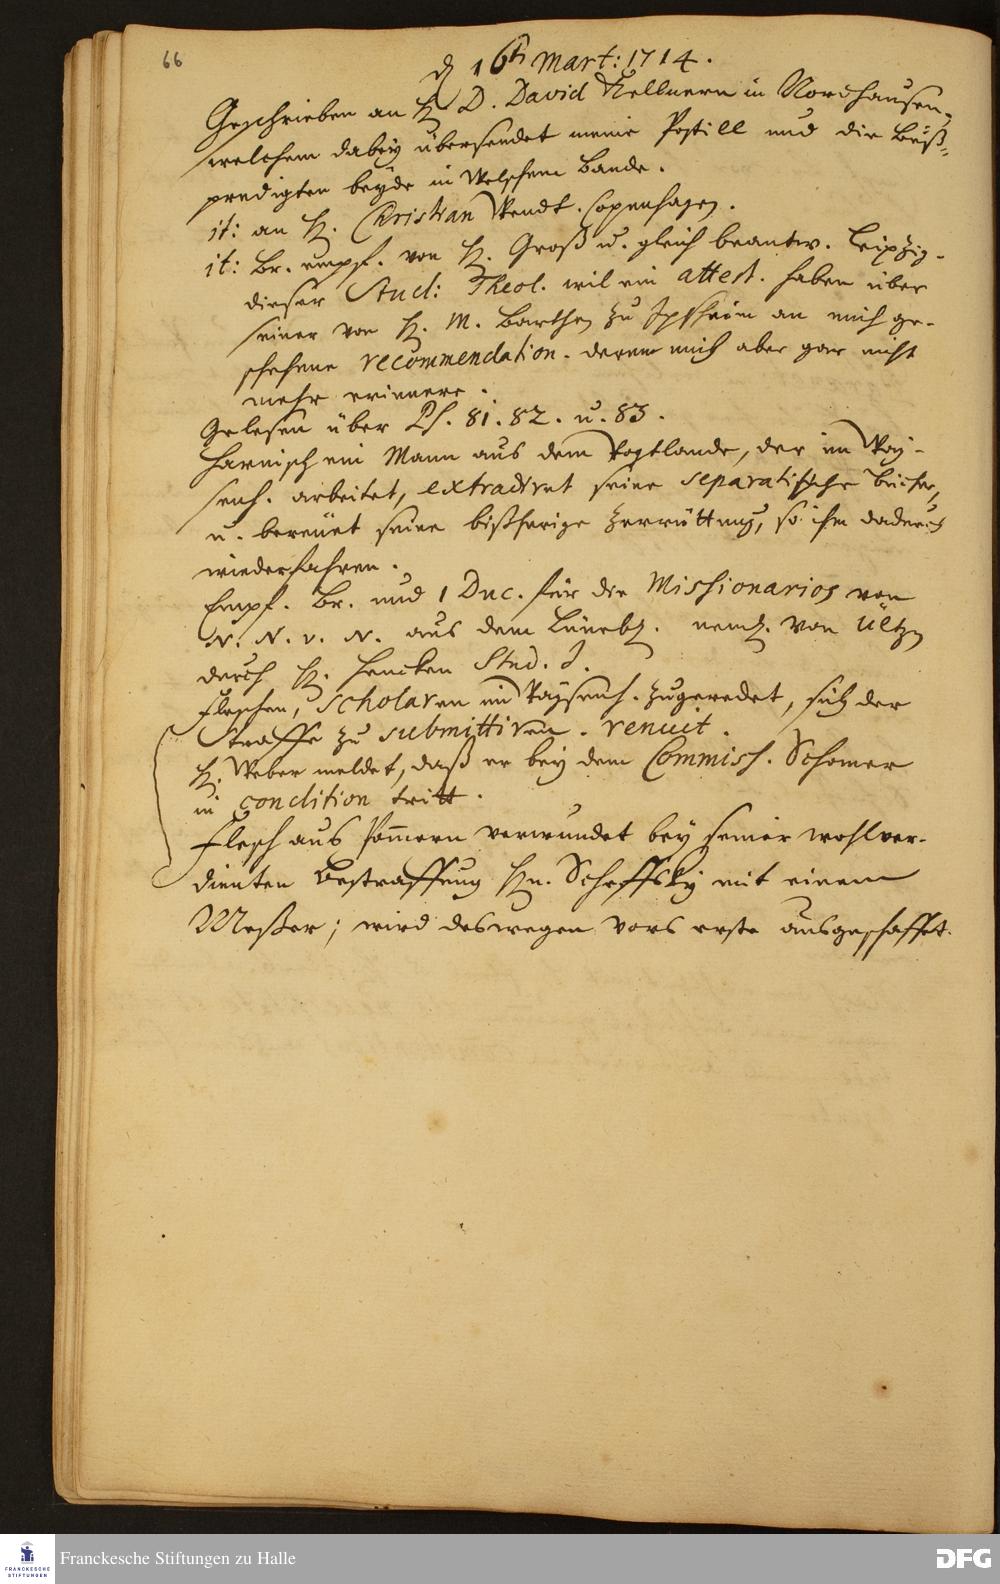 66
d 16ten Mart: 1714.
Geschrieben an H. D. David Kellnern in Nordhausen,
welchem dabey übersendet meine Postill und die Buß=
predigten beyde in Welschem Bande.
it: an H. Christian Wendt. Copenhagen.
it: Br. empf. von H. Groß u. gleich beantw. Leipzig.
dieser Stud: Theol. wil ein attest. haben über
seiner von H. M. Barthen zu Ipsheim an mich ge-
schehene recommendation. deren mich aber gar nicht
mehr erinnere.
Gelesen über Ps. 81. 82. u. 83.
Harnisch ein Mann aus dem Vogtlande, der im Way-
senh. arbeitet, extradiret seine separatistische Bücher,
u. bereüet seine bißherige Zerrüttung, so ihm dadurch
wiederfahren.
Empf. Br. und 1 Duc. für die Missionarios von
N. N. v. N. aus dem Lüneb. neml. von Ültzen
durch H. Hencken Stud. J.
Fleschen, Scholaren im Waysenh. zugeredet, sich der
Straffe zu submittiren. renuit.
H. Weber meldet, daß er bey dem Commiss. Schomer
in condition tritt.
Flesch aus Pommern verwundet bey seiner wohlver-
dienten Bestraffung Hn. Scheffsky mit einem
Meßer; wird deswegen vors erste ausgeschaffet.
Franckesche Stiftungen zu Halle
FRANCKESCHE
STIFTUNGEN
DFG